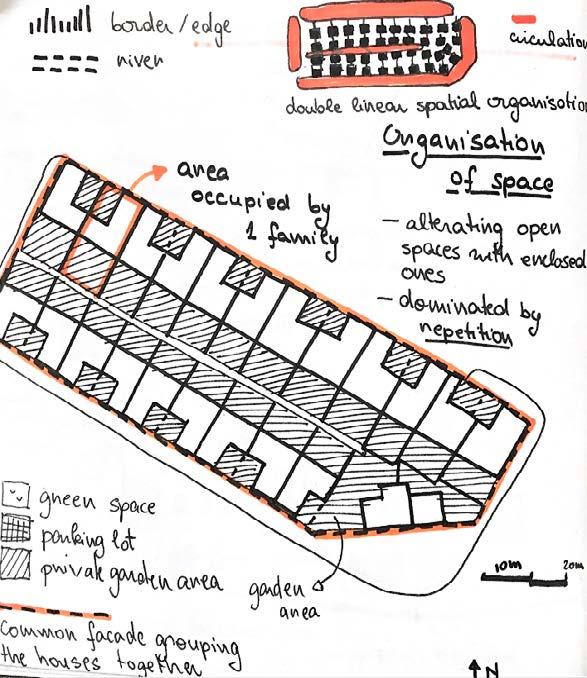 border/edge
river
circulation
double linear spatial organisation
Organisation
of space
area
occupied by
1 family
- alterating open
spaces with enclosed
ones
- dominated by
repetition
green space
parking lot
private garden area
garden
area
10m 20m
Common facade grouping
the houses together
N